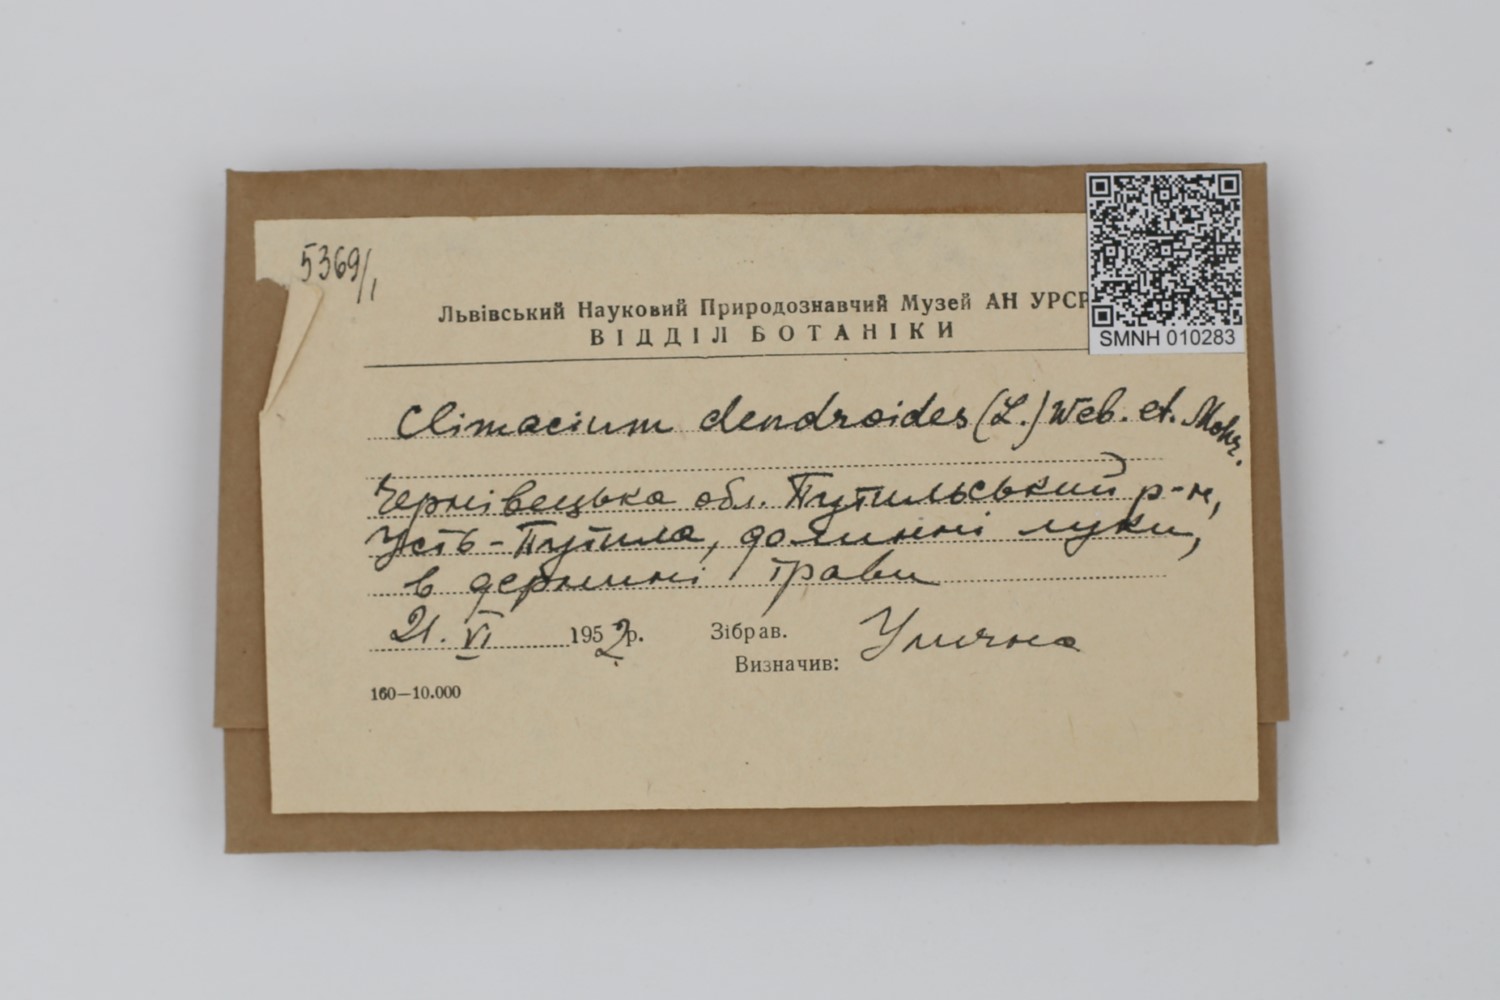 5369/1
Львівський Науковий Природознавчий Музей АН УРСР
ВІДДІЛ БОТАНІКИ
SMNH 010283
Climacium dendroides (L.) Web. et. Mohr.
Чернівецька обл. Путильський р-н,
Усть-Путила, долинні луки,
в дернині трави
21. VI 1952 р. Зібрав. Улична
Визначив:
160—10.000